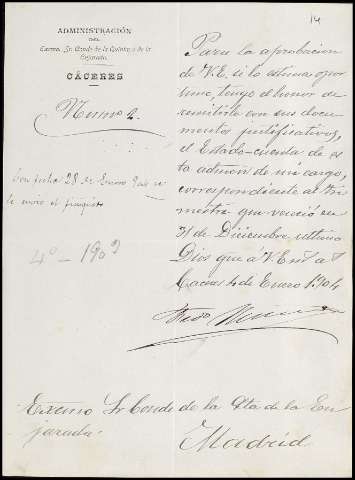 14
ADMINISTRACIÓN
DEL
Excmo. Sr. Conde de la Quinta de la
Enjarada
CÁCERES
Numo 2.
Para la aprobacion
de V.E. si lo estima opor
tuno, tengo el honor de
remitirle con sus docu
mentos justificativos,
el Estado-cuenta de es
ta admon de mi cargo,
correspondiente al tri
mestre que venció en
31 de Diciembre ultimo
Dios gue á V.E. ms as
Caceres 4 de Enero 1904
Con fecha 28 de Enero
4º - 1903
Excmo Sr Conde de la Qta de la En
jarada
Madrid